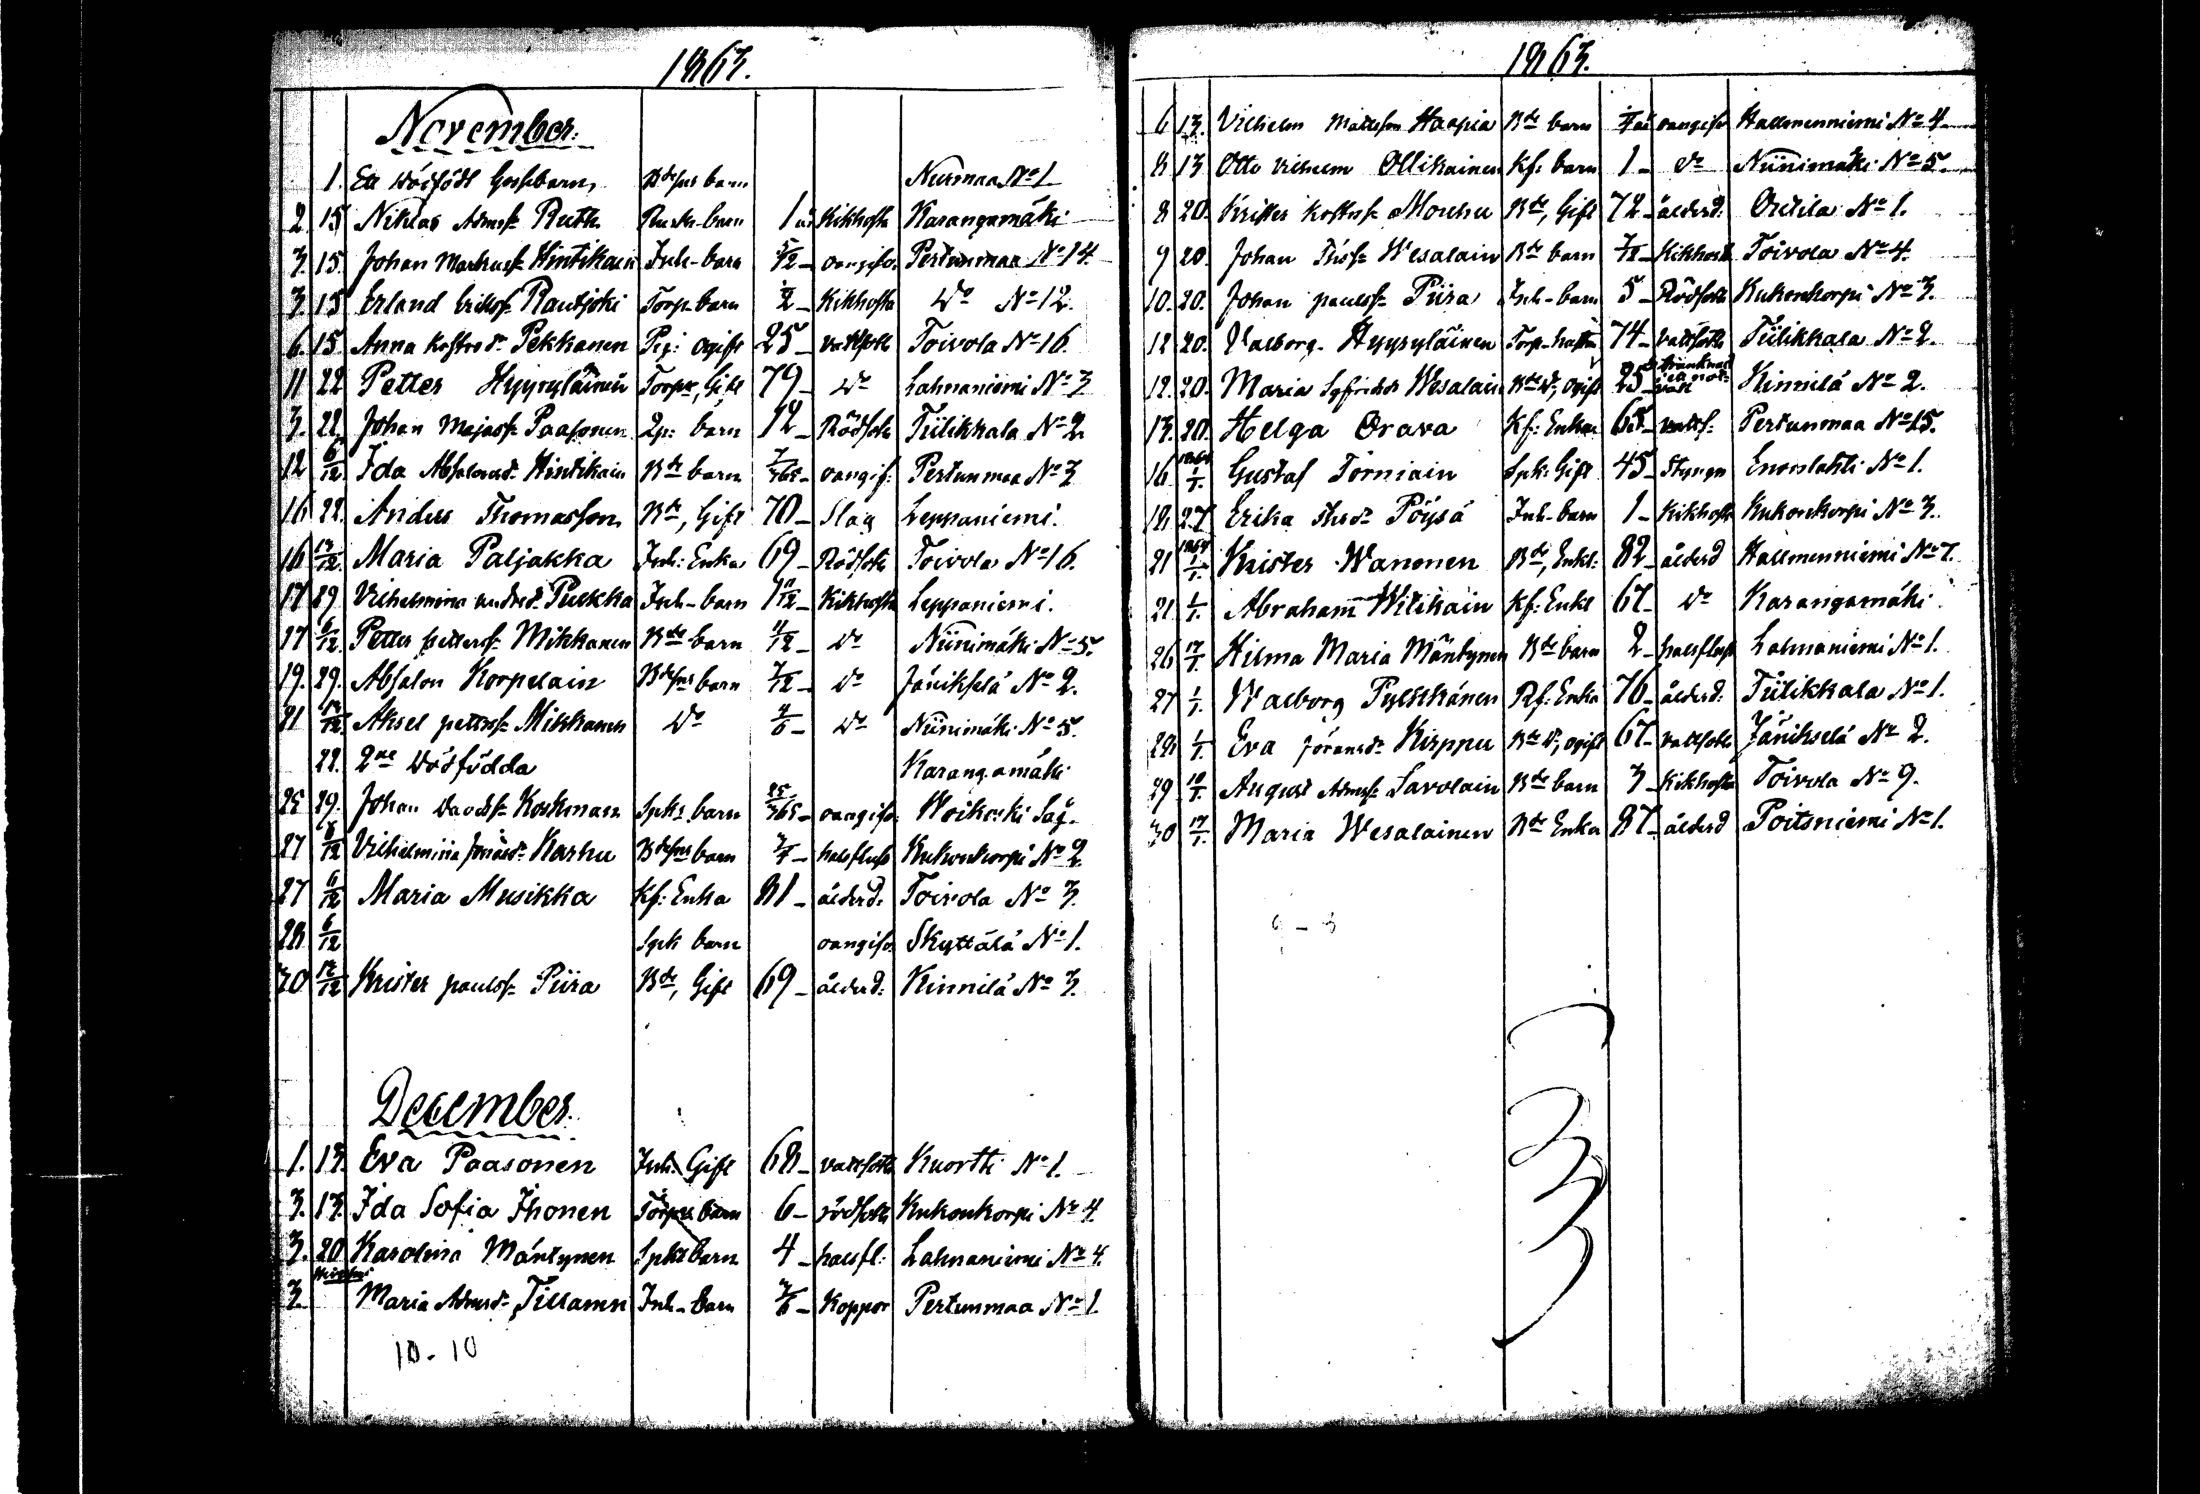 1863.
November.
1. Ett dödfödt Gossebarn, Bdesns barn Nurmaa No 1
2 15 Niklas Admss. Ruth Rusth. barn 1 år Kikhosta Karangamäki
3. 15. Johan Markuss. Hintikain Inh-barn 5/12 - oangifv. Pertunmaa No 14.
3. 15 Erland Erikss. Rautjoki Torp. barn Kikhosta Do No 12.
6. 15. Anna Kristrsdr Pekkanen Pig: ogift 25 - vattsot Toivola No 16.
11 22 Petter Hyyryläinen Torpr, Gift 79 - Do Lahnaniemi No 3
3. 22. Johan Majass. Paasonen Lp: barn 12 - Rödsot Tiilikkala No 2.
12 6/12 Ida Absalonsdr Hintikain Bde barn 7/365 - oangif: Pertunmaa No 3
16 22. Anders Thomasson Bde, Gift 70 - Slag Leppaniemi.
16 13/12 Maria Paljakka Inh: Enka 69 - Rödsot Toivola No 16.
17 29. Vilhelmina Andrsdr Pulkka Inh-barn Kikhosta Leppaniemi.
17 6/12 Petter Petterss. Mikkanen Bde barn 4/12 - Do Niinimäki No 5.
19. 29. Absalon Korpelain Bdesns barn 7/12 - Do Jänikselä No 2.
21 13/12 Aksel petterss. Mikkanen Do Do Niinimäki No 5.
22. 2ne Dödfödda Karangamäki
25 29. Johan Davidss. Koskman Spks barn 25/365 - oangifv. Woikoski Såg.
27 6/12 Vilhelmina Jonasdr Karhu Bdesns barn halsfluss Kukonkorpi No 2
27 6/12 Maria Musikka Kf: Enka 81 - ålderd: Toivola No 3.
28. 6/12 Spk barn oangifv. Skyttälä No 1.
30 12/12 Krister paulss. Piira Bde, Gift 69 - ålderd: Kinnilä No 3.
December.
1. 13. Eva Paasonen Inh. Gift 68 - vattsot Kuortti No 1.
3. 13. Ida Sofia Ihonen Torpr barn 6 - rödsot Kukonkorpi No 4.
3. 20 Karolina Mäntynen Spks barn 4 - halsfl: Lahnaniemi No 4.
3. Maria Admsdr Tillanen Inh-barn Koppor Pertunmaa No 1
10 - 10
1863.
6 13. Vilhelm Mattsson Haapia Bde barn oangifv Hallmenniemi No 4
8 13 Otto Vilhelm Ollikainen Kf: barn 1 - Do Niinimäki No 5.
8 20. Krister Kristerss. Mouhu Bde, Gift 72 - ålderd: Ordila No 1.
9 20. Johan Thoss. Wesalain Bde barn 7/12 - Kikhosta Toivola No 4.
10. 20. Johan paulss. Piira Inh-barn 5 - Rödsot Kukonkorpi No 3.
12 20. Valborg. Hyyryläinen Torp-hustru 74 - vattsot Tiilikkala No 2.
12. 20. Maria Sigfridsdr Wesalain Bdedr, ogift 25 - drunknad i en not-vak Kinnilä No 2.
13. 20. Helga Orava Kf: Enka 65 - vatts: Pertunmaa No 15.
16 1864 1/1. Gustaf Törniain Spk: Gift 45 - Styngn Enonlahti No 1.
18 27 Erika Thsdr Pöysä Inh-barn 1 - Kikhosta Kukonkorpi No 3.
21 1864 1/1. Krister Wanonen Bde, Enkl: 82 - ålderd Hallmenniemi No 7.
21 1/1. Abraham Witikain Kf: Enkl 67. - Do Karangamäki
26 17/1. Hilma Maria Mäntynen Bde barn 2 - halsfluss Lahnaniemi No 1.
27 1/1. Walborg Pylkkänen Kf: Enka 76 - ålderd. Tiilikkala No 1.
28 1/1. Eva Jöransdr Kirppu Bdedr, ogift 67 - vattsot Jänikselä No 2.
29 10/1. August Admss. Savolain Bde barn 3 - Kikhosta Toivola No 9.
30 17/1. Maria Wesalainen Bde Enka 87 - ålderd Poitsniemi No 1.